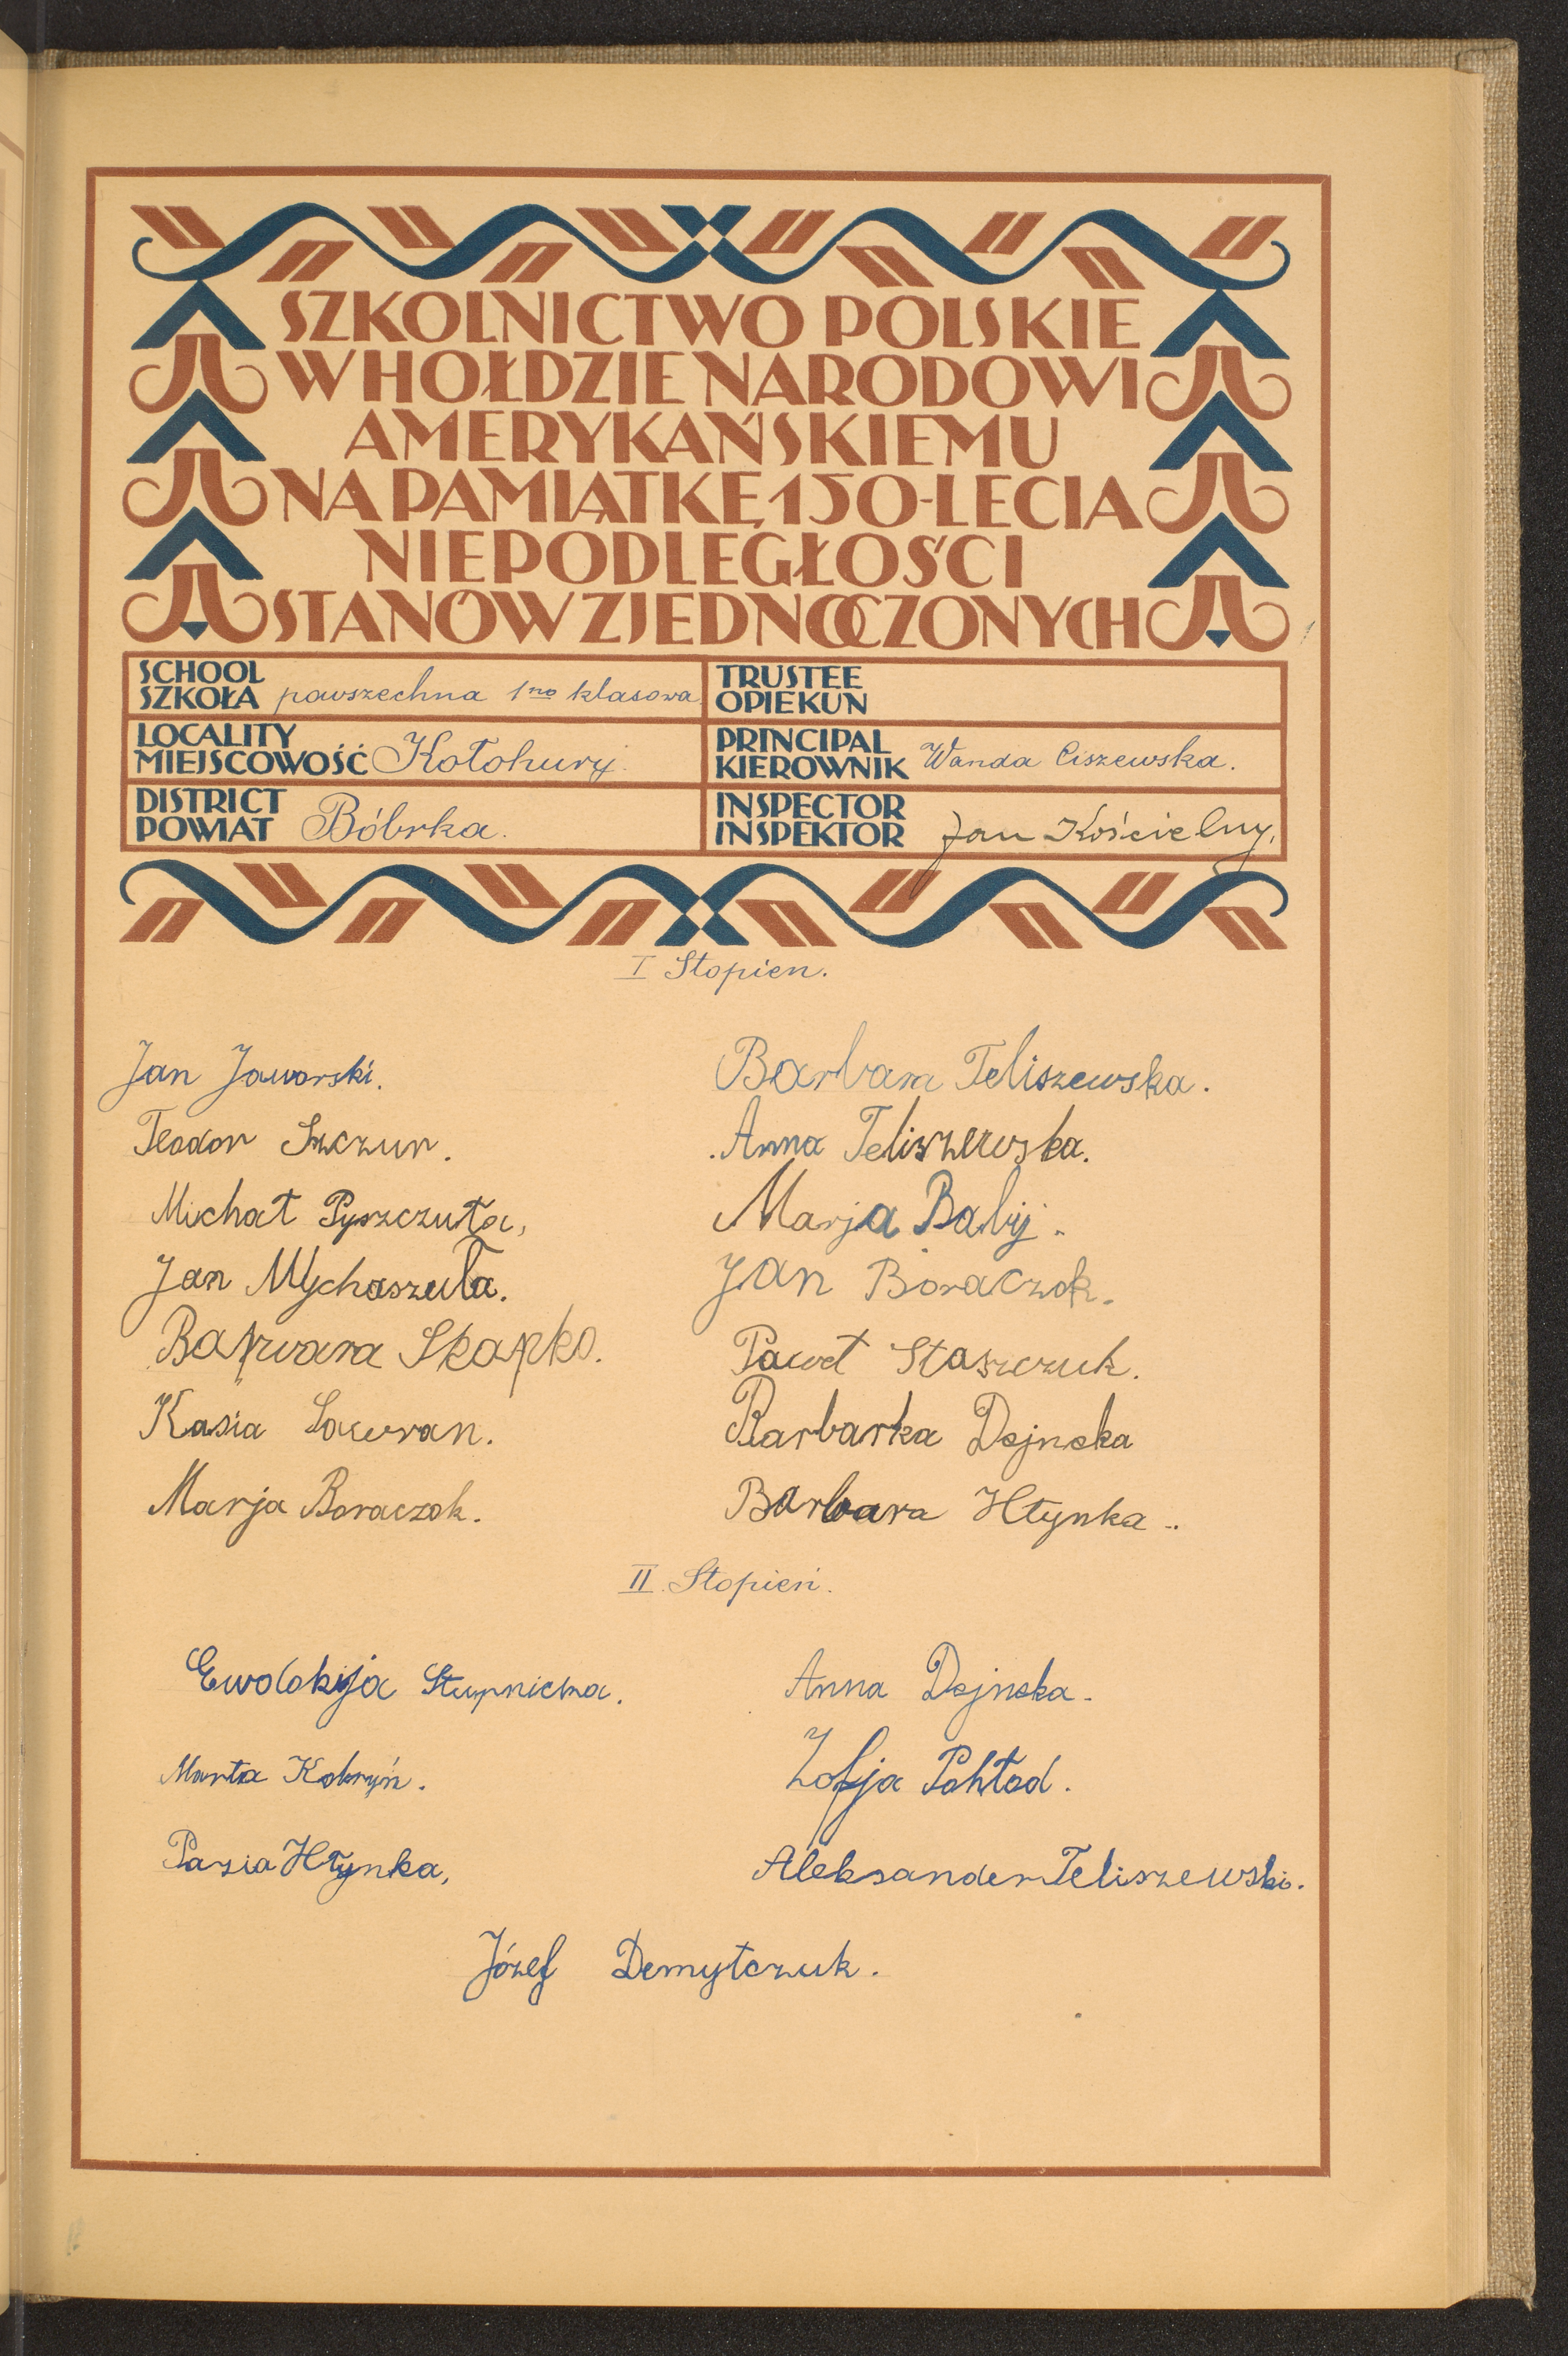 SZKOLNICTWO POLSKIE
W HOŁDZIE NARODOWI
AMERYKAŃSKIEMU
NA PAMIĄTKĘ 150-LECIA
NIEPODLEGŁOŚCI
STANÓW ZJEDNOCZONYCH
SCHOOL
SZKOŁA powszechna 1no klasowa
TRUSTEE
OPIEKUN
LOCALITY
MIEJSCOWOŚĆ Kołohury
PRINCIPAL
KIEROWNIK Wanda Ciszewska.
DISTRICT
POWIAT Bóbrka.
INSPECTOR
INSPEKTOR Jan Kościelny.
I Stopien.
Jan Jaworski.
Teodor Szczur.
Michał Pyszczuła,
Jan Mychaszuła.
Barwara Skapko.
Kasia Lawran.
Marja Boraczok.
Barbara Teliszewska.
Anna Teliszewska.
Marja Babij.
Jan Boraczok.
Paweł Staszczuk.
Barbarka Dejneka
Barbara Hłynka..
II. Stopień.
Ewdokija Stupnicka.
Marta Kobryń.
Pazia Hłynka,
Anna Dejneka.
Zofja Pohłod.
Aleksander Teliszewski.
Józef Demytczuk.